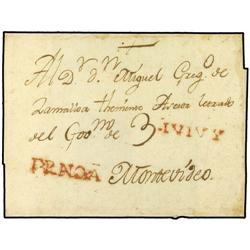 Al D.r d.n Miguel Greg.o de
Zamalloa theniente Asesor letrado
del Gov.no de 3 JVJVY
FRANCA Montevideo.